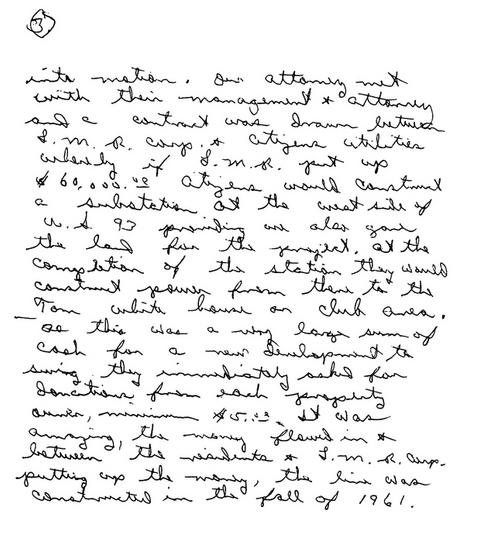 3
into motion. Our attorney met
with their management & attorney
and a contract was drawn between
L. M. R. Corp. & Citizens Utilities
whereby if L. M. R. put up
$60,000.00 Citizens would construct
a substation at the west side of
U. S. 93 providing we also gave
the land for the project. At the
completion of the station they would
construct power from there to the
Tom White house or club area.
As this was a very large sum of
cash for a new development to
swing they immediately asked for
donations from each property
owner, minimum $5.00. It was
amazing, the money flowed in &
between the residents & L. M. R. Corp.
putting up the money, the line was
constructed in the fall of 1961.